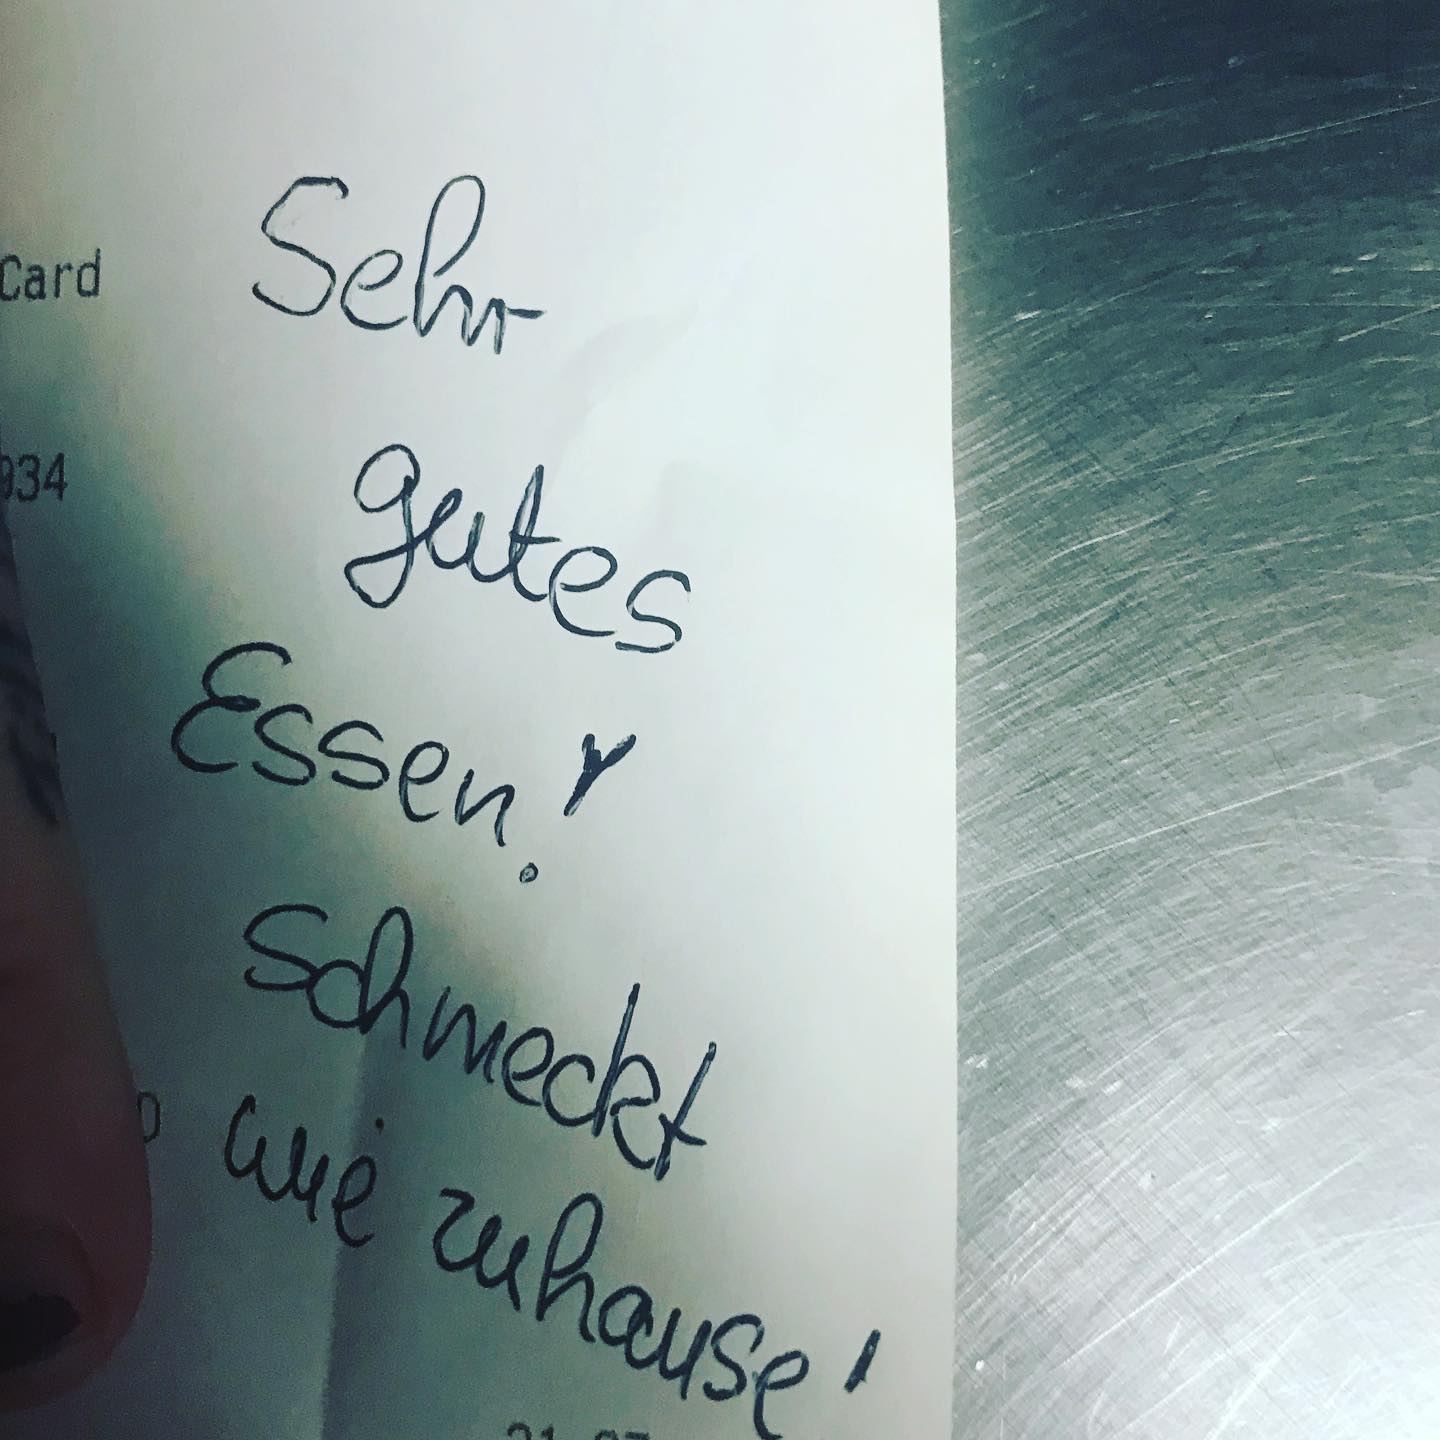 Card
Sehr
034
gutes
Essen!
schmeckt
wie zuhause!